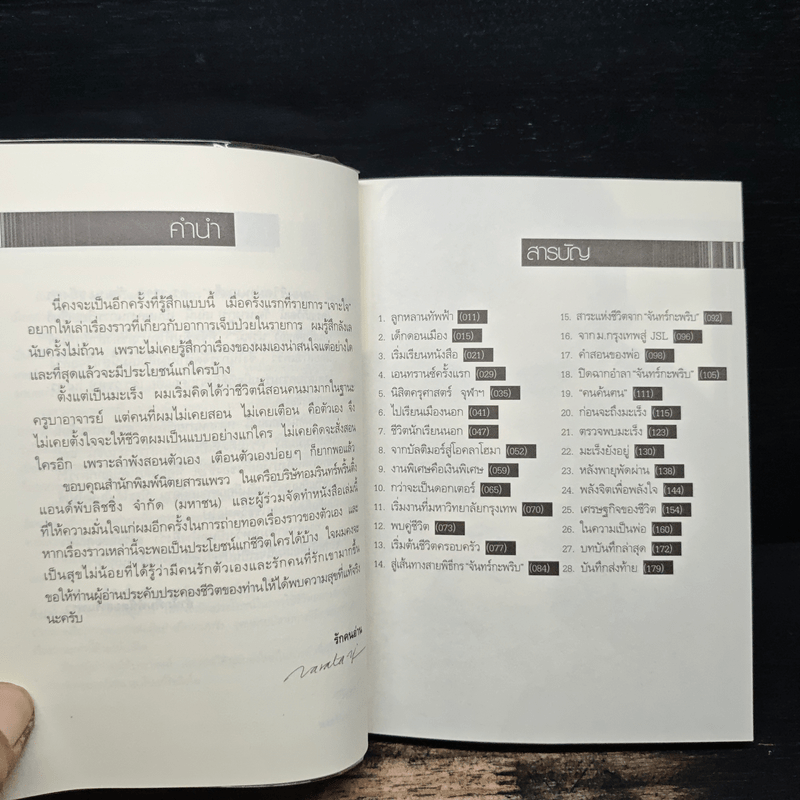 คำนำ
นี่คงจะเป็นอีกครั้งที่รู้สึกแบบนี้ เมื่อครั้งแรกที่รายการ "เจาะใจ"
อยากให้เล่าเรื่องราวที่เกี่ยวกับอาการเจ็บป่วยในรายการ ผมรู้สึกลังเล
นับครั้งไม่ถ้วน เพราะไม่เคยรู้สึกว่าเรื่องของผมเองน่าสนใจแต่อย่างใด
และที่สุดแล้วจะมีประโยชน์แก่ใครบ้าง
ตั้งแต่เป็นมะเร็ง ผมเริ่มคิดได้ว่าชีวิตนี้สอนคนมามากในฐานะ
ครูบาอาจารย์ แต่คนที่ผมไม่เคยสอน ไม่เคยเตือน คือตัวเอง จึง
ไม่เคยตั้งใจจะให้ชีวิตผมเป็นแบบอย่างแก่ใคร ไม่เคยคิดจะสั่งสอน
ใครอีก เพราะลำพังสอนตัวเอง เตือนตัวเองบ่อยๆ ก็ยากพอแล้ว
ขอบคุณสำนักพิมพ์นิตยสารแพรว ในเครือบริษัทอมรินทร์พริ้นติ้ง
แอนด์พับลิชชิ่ง จำกัด (มหาชน) และผู้ร่วมจัดทำหนังสือเล่มนี้
ที่ให้ความมั่นใจแก่ผมอีกครั้งในการถ่ายทอดเรื่องราวของตัวเอง และ
หากเรื่องราวเหล่านี้จะพอเป็นประโยชน์แก่ชีวิตใครได้บ้าง ใจผมคงจะ
เป็นสุขไม่น้อยที่ได้รู้ว่ามีคนรักตัวเองและรักคนที่รักเขามากขึ้น
ขอให้ท่านผู้อ่านประคับประคองชีวิตของท่านให้ได้พบความสุขที่แท้จริง
นะครับ
รักคนอ่าน
สารบัญ
1. ลูกหลานทัพฟ้า (011)
2. เด็กดอนเมือง (015)
3. เริ่มเรียนหนังสือ (021)
4. เอนทรานซ์ครั้งแรก (029)
5. นิสิตครุศาสตร์ จุฬาฯ (035)
6. ไปเรียนเมืองนอก (041)
7. ชีวิตนักเรียนนอก (047)
8. จากบัลติมอร์สู่โอคลาโฮมา (052)
9. งานพิเศษคือเงินพิเศษ (059)
10. กว่าจะเป็นดอกเตอร์ (065)
11. เริ่มงานที่มหาวิทยาลัยกรุงเทพ (070)
12. พบคู่ชีวิต (073)
13. เริ่มต้นชีวิตครอบครัว (077)
14. สู่เส้นทางสายพิธีกร "จันทร์กะพริบ" (084)
15. สาระแห่งชีวิตจาก "จันทร์กะพริบ" (092)
16. จาก ม.กรุงเทพสู่ JSL (096)
17. คำสอนของพ่อ (098)
18. ปิดฉากอำลา "จันทร์กะพริบ" (105)
19. "คนค้นตน" (111)
20. ก่อนจะถึงมะเร็ง (115)
21. ตรวจพบมะเร็ง (123)
22. มะเร็งยังอยู่ (130)
23. หลังพายุพัดผ่าน (138)
24. พลังจิตเพื่อพลังใจ (144)
25. เศรษฐกิจของชีวิต (154)
26. ในความเป็นพ่อ (160)
27. บทบันทึกล่าสุด (172)
28. บันทึกส่งท้าย (179)